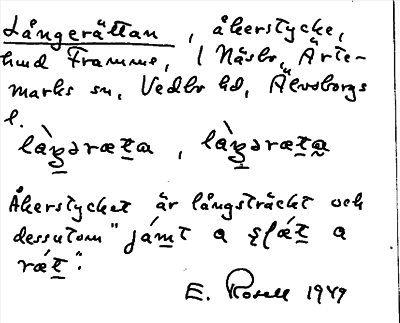 Långerättan, åkerstycke,
hmd Framme, l Näsbo, Ärte-
marks sn, Vedbo hd, Älvsborgs
l.
là̱ŋəræt̲a, là̱ŋəræt̲a̰
Åkerstycket är långsträckt och
dessutom "jám̲t a şlǽt̲ a
rǽt̲".
E. Rosell 1949